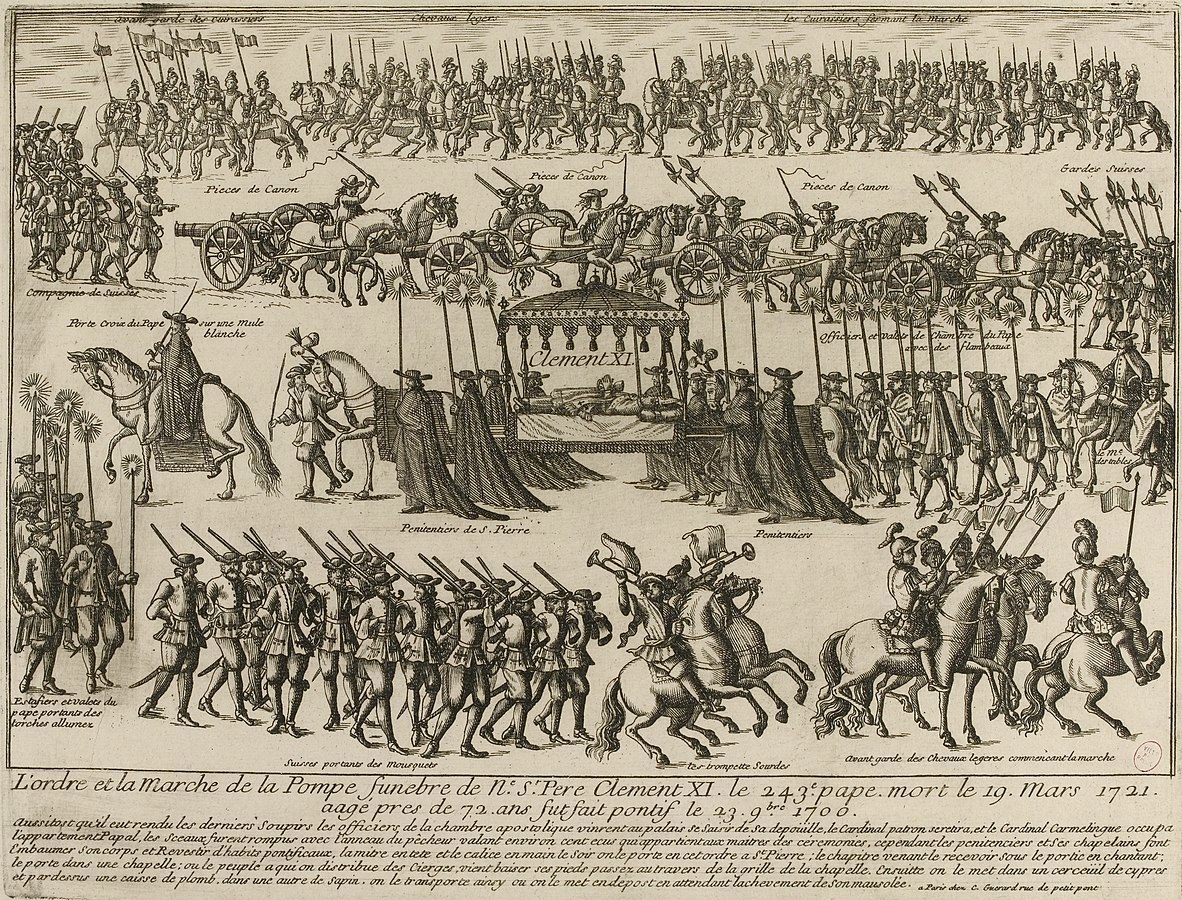 Avant garde des Cuirassiers
Chevaux legers
les Cuirassiers fermant la Marche
Pieces de Canon
Pieces de Canon
Pieces de Canon
Gardes Suisses
Compagnie de Suisses
Porte Croix du Pape sur une Mule
blanche
Clement XI.
Officiers et Valets de Chambre du Pape
avec des flambeaux
le Me.
des tables
Penitentiers de S. Pierre
Penitentiers
Estafiers et valets du
pape portants des
torches allumez
Suisses portants des Mousquets
les trompette Sourdes
Avant garde des Chevaux legeres commencant la marche
L'ordre et la Marche de la Pompe funebre de N.e S.t Pere Clement XI. le 243.e pape. mort le 19. Mars 1721.
aagé pres de 72. ans fut fait pontif le 23. 9.bre 1700.
Aussitost qu'il eut rendu les derniers Soupirs les officiers de la chambre apostolique vinrent au palais se Saisir de Sa depoüille, le Cardinal patron se retira, et le Cardinal Carmelingue occupa
l'appartement Papal, les Sceaux furent rompus avec l'anneau du pècheur valant environ cent ecus qui appartient aux maitres des ceremonies, cependant les penitenciers et Ses chapelains font
Embaumer Son corps et Revestir d'habits pontificaux, la mitre en tete et le calice en main le Soir on le porte en cet ordre a S.t Pierre; le chapitre venant le recevoir Sous le portic en chantant;
le porte dans une chapelle; ou le peuple a qui on distribue des Cierges, vient baiser Ses pieds passez au travers de la grille de la chapelle. Ensuitte on le met dans un cerceuil de cypres
et par dessus une caisse de plomb, dans une autre de Sapin. on le transporte ainsy ou on le met en depost en attendant lachevement de Son mausolée. a Paris chez C. Guerard rue de petit pont